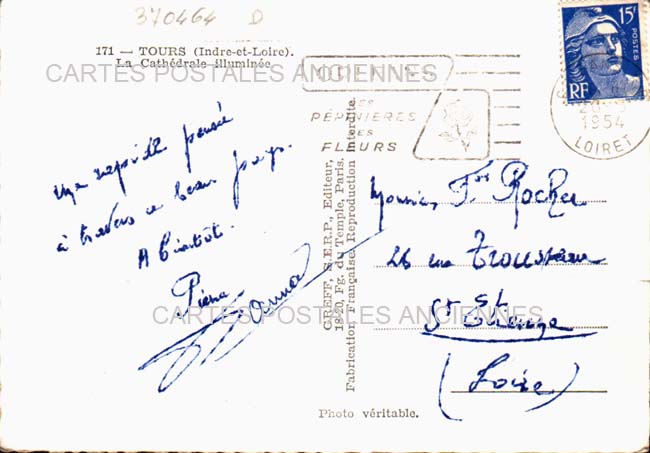 370464 D
171 — TOURS (Indre-et-Loire).
La Cathédrale illuminée
CARTES POSTALES ANCIENNES
15F
POSTES
RF
LES
PÉPINIÈRES
SES
FLEURS
1954
LOIRET
une rapide pensée
à travers ce beau pays.
A bientôt.
Pierre
GREFF, S.E.R.P., Editeur,
18-20, Fg. du Temple, Paris.
Fabrication Française. Reproduction interdite.
Monsieur Fr Rocher
26 rue Trousseau
St
(Loire)
CARTES POSTALES ANCIENNES
Photo véritable.